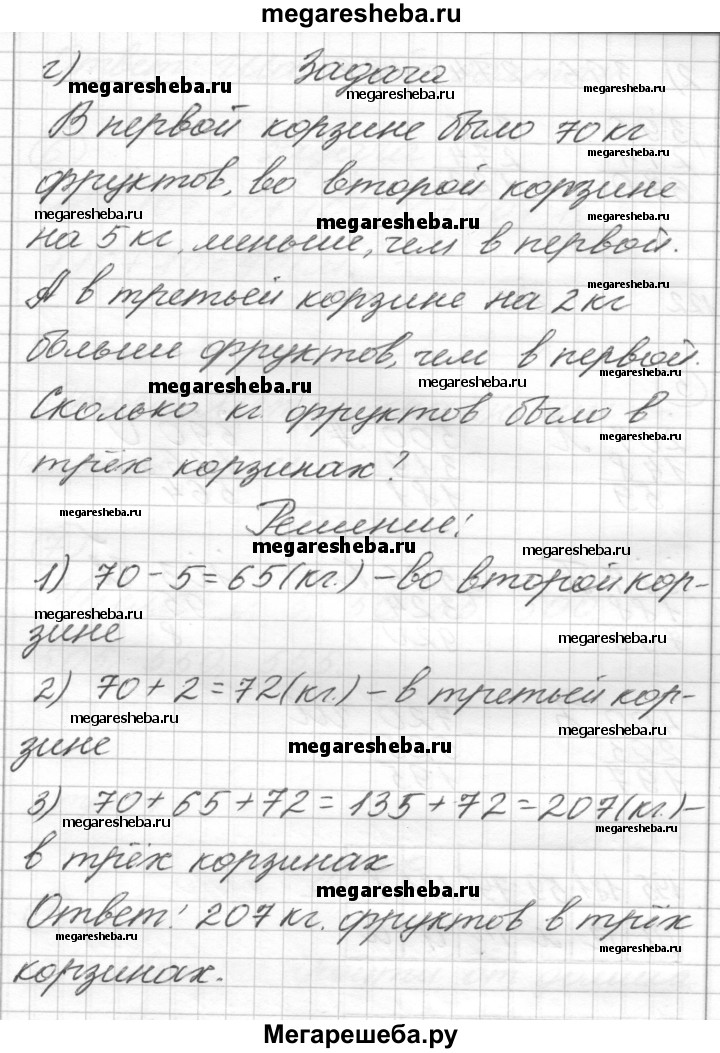 megaresheba.ru
г) Задача
megaresheba.ru megaresheba.ru megaresheba.ru
В первой корзине было 70 кг
megaresheba.ru
фруктов, во второй корзине
megaresheba.ru megaresheba.ru megaresheba.ru
на 5 кг. меньше, чем в первой.
А в третьей корзине на 2 кг
megaresheba.ru
больше фруктов, чем в первой.
megaresheba.ru megaresheba.ru megaresheba.ru
Сколько кг фруктов было в
megaresheba.ru
трёх корзинах?
megaresheba.ru
Решение:
megaresheba.ru megaresheba.ru
1) 70 - 5 = 65 (кг.) - во второй кор-
megaresheba.ru
зине
megaresheba.ru
2) 70 + 2 = 72 (кг.) - в третьей кор-
megaresheba.ru megaresheba.ru
зине
megaresheba.ru
3) 70 + 65 + 72 = 135 + 72 = 207 (кг.) -
megaresheba.ru megaresheba.ru
в трёх корзинах
megaresheba.ru
Ответ: 207 кг. фруктов в трёх
megaresheba.ru megaresheba.ru
корзинах.
megaresheba.ru
Мегарешеба.ру